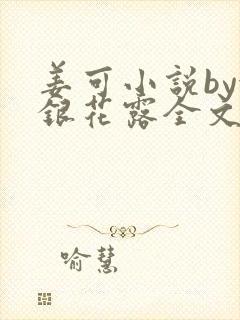 姜可小説by
銀花露全文
喻慧